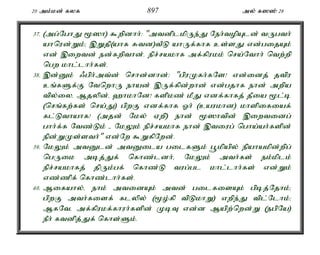 20 அம்மன் கலக 897 அல் கஸஸ் 28
37. (அப்போது மூஸா) கூறினார்: "அவனிடமிருந்து நேர்வழியுடன் வருபவர்
யாரென்றும்; இறுதி(யாக சுவன)வீடு யாருக்காக உள்ளது என்பதையும்
என் இறைவன் நன்கறிவான். நிச்சயமாக அக்கிரமம் செய்வோர் வெற்றி
பெற மாட்டார்கள்.
38. இன்னும் ஃபிர்அவ்ன் சொன்னான்: "பிரமுகர்களே! என்னைத் தவிர
உங்களுக்கு வேறொரு நாயன் இருக்கின்றான் என்பதாக நான் அறிய
வில்லை. ஆதலின், ஹாமானே! களிமண் மீது எனக்காகத் தீயை மூட்டி
(செங்கற்கள் செய்து) பிறகு எனக்காக ஓர் (உயரமான) மாளிகையைக்
கட்டுவாயாக! (அதன் மேல் ஏறி) நான் மூஸாவின் இறைவனைப்
பார்க்க வேண்டும் - மேலும் நிச்சயமாக நான் இவரைப் பொய்யர்களின்
நின்றுமுள்ளவர்" என்றே கூறுகிறேன்.
39. மேலும் அவனுடன் அவனுடைய படைகளும் பூமியில் நியாயமின்றிப்
பெருமை அடித்துக் கொண்டனர், மேலும் அவர்கள் நம்மிடம்
நிச்சயமாகத் திரும்பக் கொண்டு வரப்பட மாட்டார்கள் என்றும்
எண்ணிக் கொண்டார்கள்.
40. ஆகையால், நாம் அவனையும் அவன் படைகளையும் பிடித்தோம்;
பிறகு அவர்களைக் கடலில் (மூழ்கி விடுமாறு) எறிந்து விட்டோம்;
ஆகவே, அக்கிரமக்காரர்களின் முடிவு என்ன ஆயிற்றென்று (நபியே)
நீர் கவனித்துக் கொள்ளும்.